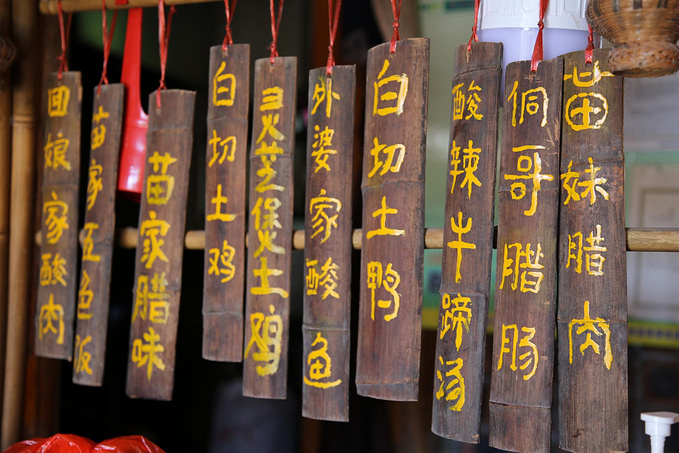 回娘家酸肉
苗家五色饭
苗家腊味
白切土鸡
灵芝煲土鸡
外婆家酸鱼
白切土鸭
酸辣牛蹄汤
侗哥腊肠
苗妹腊肉